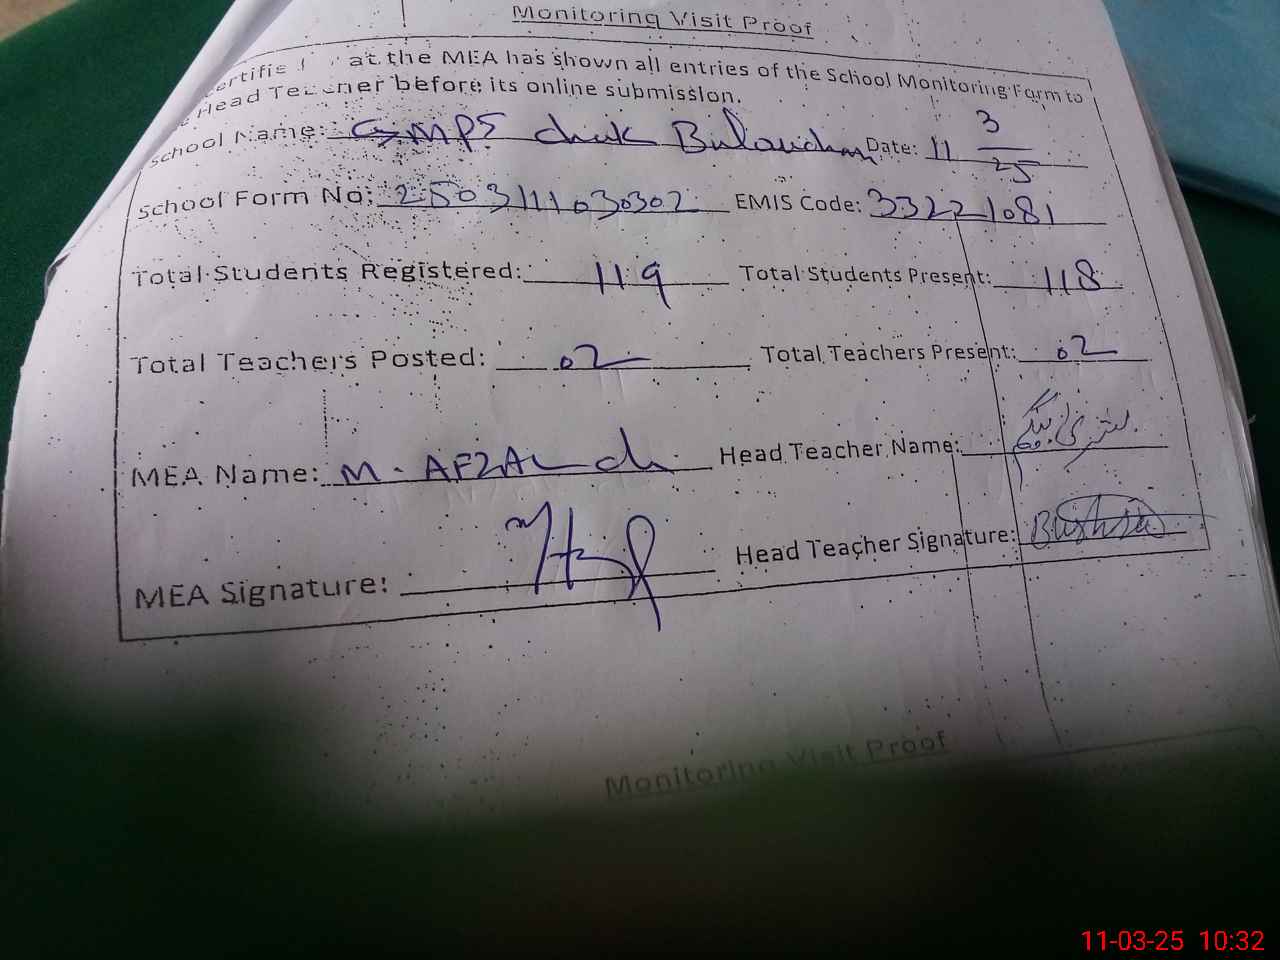 Monitoring Visit Proof
at the MEA has shown all entries of the School Monitoring Form to
Head Teacher before its online submission.
School Name: GMPS chak Bulouchan Date: 11 3/25
School Form No: 2503111030302 EMIS Code: 33221081
Total Students Registered: 119 Total Students Present: 118
Total Teachers Posted: 02 Total Teachers Present: 02
MEA Name: M. AFZAL ch Head Teacher Name: بشریٰ بیگم
MEA Signature: Head Teacher Signature: Bushra
Monitoring Visit Proof
11-03-25 10:32